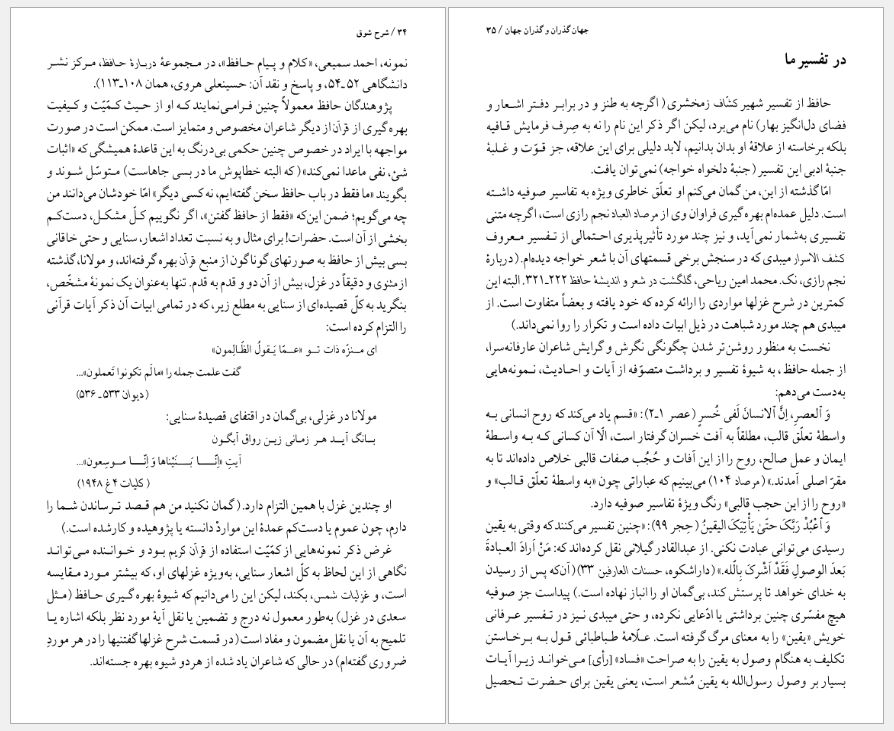 ۳۴ / شرح شوق
نمونه، احمد سمیعی، «کلام و پیام حافظ»، در مجموعهٔ دربارهٔ حافظ، مرکز نشر
دانشگاهی ۵۲ـ۵۴، و پاسخ و نقد آن: حسینعلی هروی، همان ۱۰۸ـ۱۱۳).
پژوهندگان حافظ معمولاً چنین فرامی‌نمایند که او از حیث کمّیّت و کیفیت
بهره‌گیری از قرآن از دیگر شاعران مخصوص و متمایز است. ممکن است در صورت
مواجهه با ایراد در خصوص چنین حکمی بی‌درنگ به این قاعدهٔ همیشگی که «اثبات
شئ، نفی ماعدا نمی‌کند» (که البته خطاپوش ما در بسی جاهاست) متوسّل شوند و
بگویند «ما فقط در باب حافظ سخن گفته‌ایم، نه کسی دیگر» امّا خودشان می‌دانند من
چه می‌گویم؛ ضمن این‌که «فقط از حافظ گفتن»، اگر نگوییم کلّ مشکل، دست‌کم
بخشی از آن است. حضرات! برای مثال و به نسبت تعداد اشعار، سنایی و حتی خاقانی
بسی بیش از حافظ به صورتهای گوناگون از منبع قرآن بهره گرفته‌اند، و مولانا، گذشته
از مثنوی و دقیقاً در غزل، بیش از آن دو و قدم به قدم. تنها به‌عنوان یک نمونهٔ مشخّص،
بنگرید به کلّ قصیده‌ای از سنایی به مطلع زیر، که در تمامی ابیات آن ذکر آیات قرآنی
را التزام کرده است:
ای منزّه ذات تو «عمّا یَقولُ الظّالِمون»
گفت علمت جمله را «مالَم تکونوا تَعملون»...
(دیوان ۵۳۳ ـ ۵۳۶)
مولانا در غزلی، بی‌گمان در اقتفای قصیدهٔ سنایی:
بانگ آید هر زمانی زین رواق آبگون
آیتِ «اِنّا بَنَیْناها وَ اِنّا موسِعون»...
(کلیات ۴ غ ۱۹۴۸)
او چندین غزل با همین التزام دارد. (گمان نکنید من هم قصد ترساندن شما را
دارم، چون عموم یا دست‌کم عمدهٔ این مواردْ دانسته یا پژوهیده و کارشده است.)
غرض ذکر نمونه‌هایی از کمّیّت استفاده از قرآن کریم بود و خواننده می‌تواند
نگاهی از این لحاظ به کلّ اشعار سنایی، به‌ویژه غزلهای او، که بیشتر مورد مقایسه
است، و غزلیات شمس، بکند، لیکن این را می‌دانیم که شیوهٔ بهره‌گیری حافظ (مثل
سعدی در غزل) به‌طور معمول نه درج و تضمین یا نقل آیهٔ مورد نظر بلکه اشاره یا
تلمیح به آن یا نقل مضمون و مفاد است (در قسمت شرح غزلها گفتنیها را در هر موردِ
ضروری گفته‌ام) در حالی که شاعران یاد شده از هر دو شیوه بهره جسته‌اند.
جهان گذران و گذران جهان / ۳۵
در تفسیر ما
حافظ از تفسیر شهیر کشّاف زمخشری (اگرچه به طنز و در برابر دفتر اشعار و
فضای دل‌انگیز بهار) نام می‌برد، لیکن اگر ذکر این نام را نه به صِرف فرمایش قافیه
بلکه برخاسته از علاقهٔ او بدان بدانیم، لابد دلیلی برای این علاقه، جز قوّت و غلبهٔ
جنبهٔ ادبی این تفسیر (جنبهٔ دلخواه خواجه) نمی‌توان یافت.
امّا گذشته از این، من گمان می‌کنم او تعلّق خاطری ویژه به تفاسیر صوفیه داشته
است. دلیل عمده‌ام بهره‌گیری فراوان وی از مرصاد العباد نجم رازی است، اگرچه متنی
تفسیری به‌شمار نمی‌آید، و نیز چند مورد تأثیرپذیری احتمالی از تفسیر معروف
کشف الاسرار میبدی که در سنجش برخی قسمتهای آن با شعر خواجه دیده‌ام. (دربارهٔ
نجم رازی، نک. محمد امین ریاحی، گلگشت در شعر و اندیشهٔ حافظ ۲۲۲ـ۳۲۱. البته این
کمترین در شرح غزلها مواردی را ارائه کرده که خود یافته و بعضاً متفاوت است. از
میبدی هم چند مورد شباهت در ذیل ابیات داده است و تکرار را روا نمی‌داند.)
نخست به منظور روشن‌تر شدن چگونگی نگرش و گرایش شاعران عارفانه‌سرا،
از جمله حافظ، به شیوهٔ تفسیر و برداشت متصوّفه از آیات و احادیث، نمونه‌هایی
به‌دست می‌دهم:
وَ ٱلعصرِ، اِنَّ ٱلانسانَ لَفی خُسرٍ (عصر ۱ـ۲): «قسم یاد می‌کند که روح انسانی به
واسطهٔ تعلّق قالب، مطلقاً به آفت خسران گرفتار است، الّا آن کسانی که به واسطهٔ
ایمان و عمل صالح، روح را از این آفات و حُجُب صفات قالبی خلاص داده‌اند تا به
مقرّ اصلی آمدند.» (مرصاد ۱۰۴) می‌بینیم که عباراتی چون «به واسطهٔ تعلّق قالب» و
«روح را از این حجب قالبی» رنگ ویژهٔ تفاسیر صوفیه دارد.
وَ ٱعْبُدْ رَبَّکَ حتّیٰ یَأْتِیَکَ الیقینُ (حِجر ۹۹): «چنین تفسیر می‌کنند که وقتی به یقین
رسیدی می‌توانی عبادت نکنی. از عبدالقادر گیلانی نقل کرده‌اند که: مَنْ اَرادَ العبادةَ
بَعدَ الوصولِ فَقَدْ اَشْرَکَ بِاللّٰه.» (داراشکوه، حسنات العارفین ۳۳) (آن‌که پس از رسیدن
به خدای خواهد تا پرستش کند، بی‌گمان او را انباز نهاده است.) پیداست جز صوفیه
هیچ مفسّری چنین برداشتی یا ادّعایی نکرده، و حتی میبدی نیز در تفسیر عرفانی
خویش «یقین» را به معنای مرگ گرفته است. علّامهٔ طباطبائی قول به برخاستن
تکلیف به هنگام وصول به یقین را به صراحت «فساد» [رأی] می‌خواند زیرا آیات
بسیار بر وصول رسول‌الله به یقین مُشعر است، یعنی یقین برای حضرت تحصیل